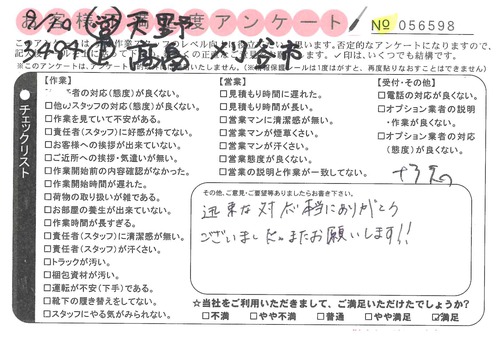 お客様満足度アンケート
№ 056598
9/20 天野
チェックリスト
【作業】
の対応(態度)が良くない。
□他のスタッフの対応(態度)が良くない。
□作業を見ていて不安がある。
□責任者(スタッフ)に好感が持てない。
□お客様への挨拶が出来ていない。
□ご近所への挨拶・気遣いが無い。
□作業開始前の内容確認がなかった。
□作業開始時間が遅れた。
□荷物の取り扱いが雑である。
□お部屋の養生が出来ていない。
□作業時間が長すぎる。
□責任者(スタッフ)に清潔感が無い。
□責任者(スタッフ)が汗くさい。
□トラックが汚い。
□梱包資材が汚い。
□運転が不安(下手)である。
□靴下の履き替えをしてない。
□スタッフにやる気がみられない。
【営業】
□見積もり時間に遅れた。
□見積もり時間が長い。
□営業マンに清潔感が無い。
□営業マンが煙草くさい。
□営業マンが汗くさい。
□営業態度が良くない。
□営業の説明と作業が一致してない。
【受付・その他】
□電話の対応が良くない。
□オプション業者の説明
・作業が良くない。
□オプション業者の対応
(態度)が良くない。
その他、ご意見・ご要望等ありましたらお書き下さい。
迅速な対応本当にありがとう
ございました。またお願いします!!
☆当社をご利用いただきまして、ご満足いただけたでしょうか?
□不満 □やや不満 □普通 □やや満足 ☑満足